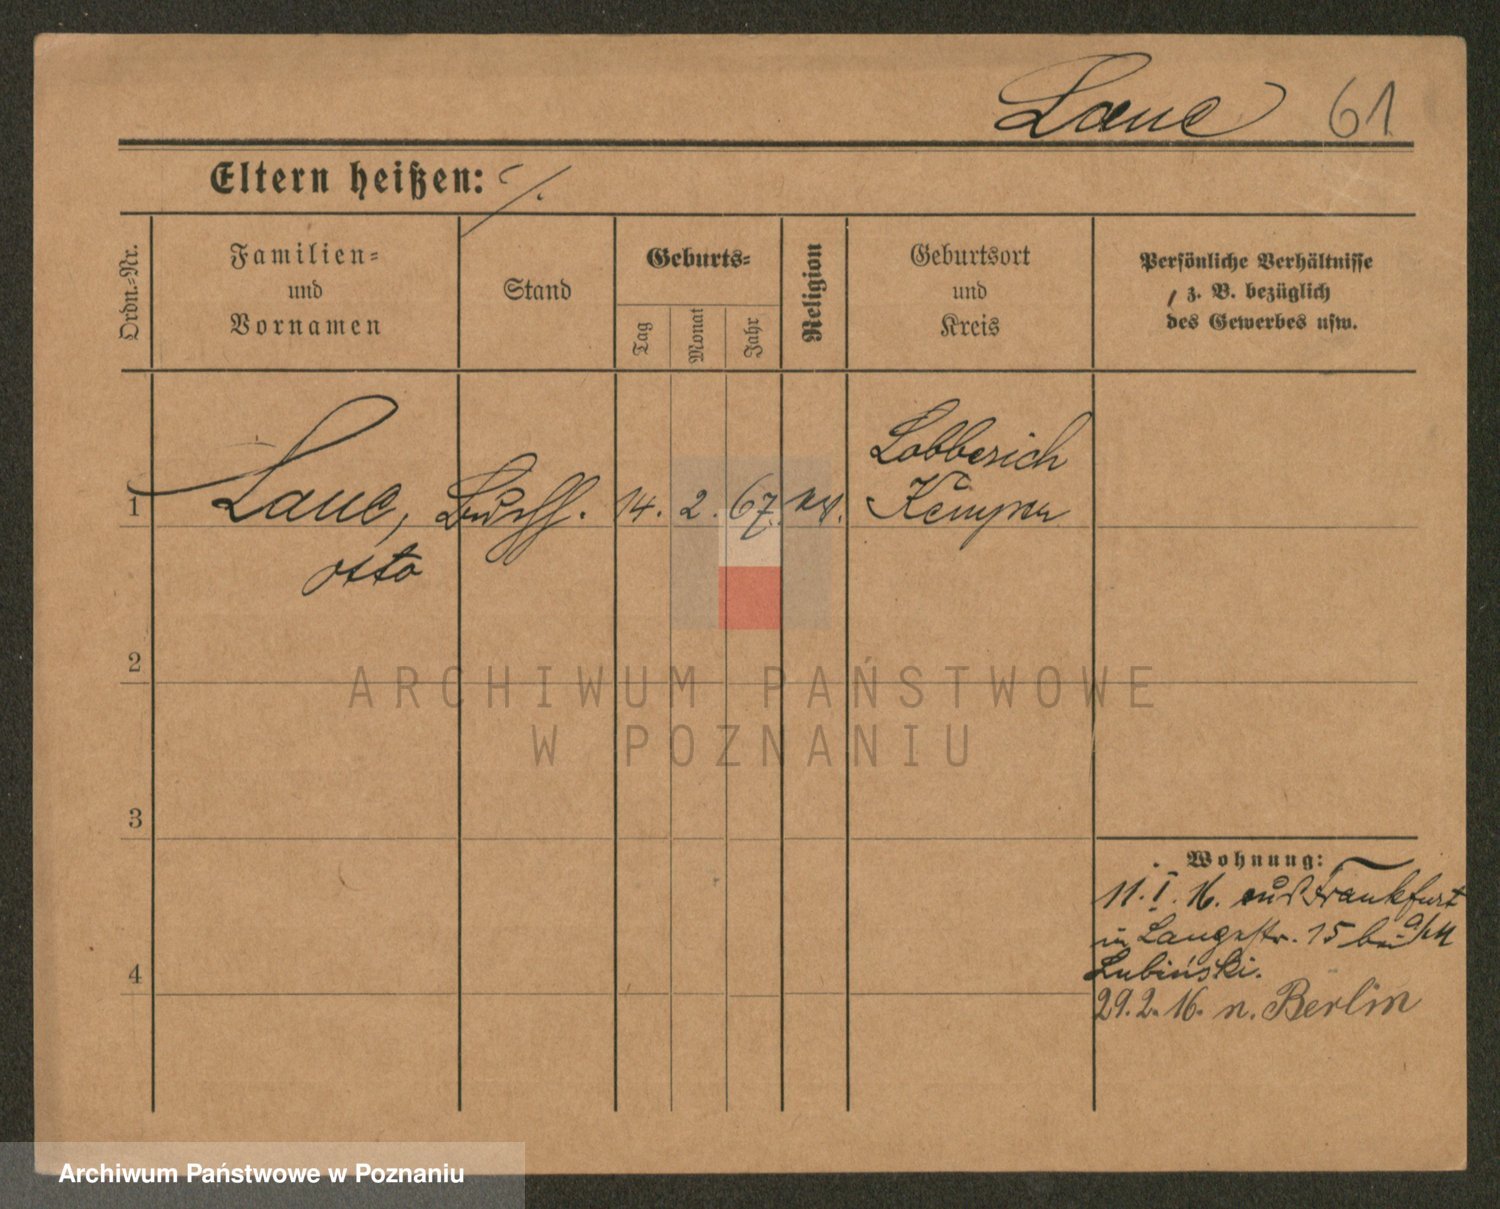 Laue 61
Eltern heißen: ./.
Ordn.-Nr.
Familien-
und
Vornamen
Stand
Geburts-
Tag
Monat
Jahr
Religion
Geburtsort
und
Kreis
Persönliche Verhältnisse
z. B. bezüglich
des Gewerbes usw.
1
Laue,
Otto
14. 2. 67.
Lobberich
Kempen
2
3
4
Wohnung:
11. I. 16. aus Frankfurt
a/M
in Langestr. 15 bei
Lubiński.
29. 2. 16. n. Berlin
ARCHIWUM PAŃSTWOWE
W POZNANIU
Archiwum Państwowe w Poznaniu